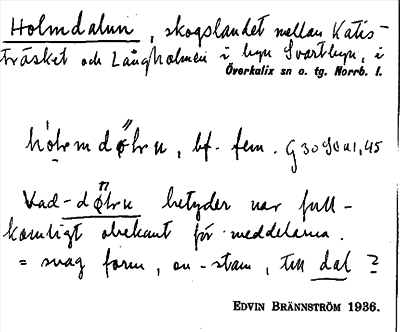 Holmdalun, skogslandet mellan Katis-
träsket och Långholmen i byn Svartbyn, i
Överkalix sn o. tg. Norrb. l.
bf. fem.
Vad betyder var full-
komligt obekant för meddelarna.
= svag form, on-stam, till dal?
EDVIN BRÄNNSTRÖM 1936.